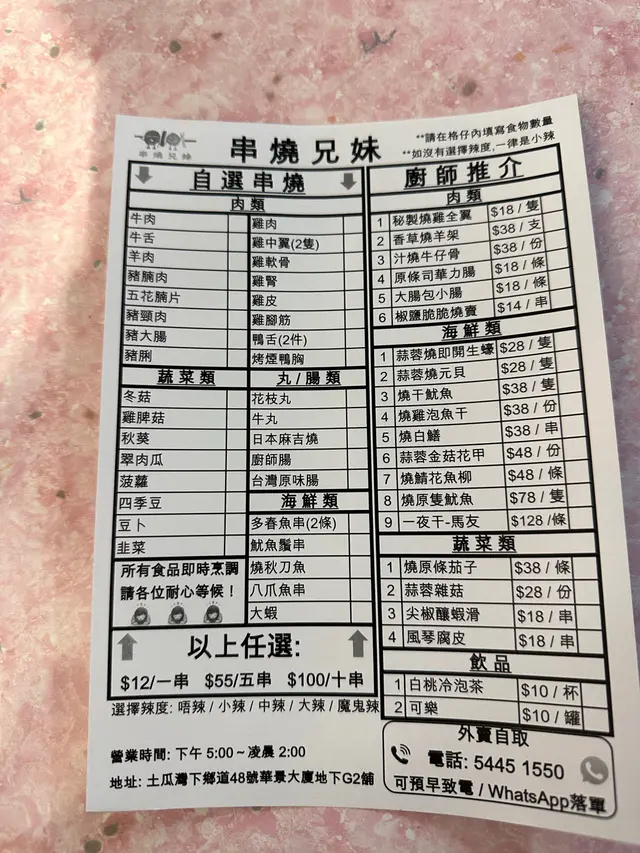 串燒兄妹
串燒兄妹
**請在格仔內填寫食物數量
**如沒有選擇辣度,一律是小辣
自選串燒
肉類
牛肉 雞肉
牛舌 雞中翼(2隻)
羊肉 雞軟骨
豬腩肉 雞腎
五花腩片 雞皮
豬頸肉 雞腳筋
豬大腸 鴨舌(2件)
豬脷 烤煙鴨胸
蔬菜類 丸/腸類
冬菇 花枝丸
雞脾菇 牛丸
秋葵 日本麻吉燒
翠肉瓜 廚師腸
菠蘿 台灣原味腸
四季豆 海鮮類
豆卜 多春魚串(2條)
韭菜 魷魚鬚串
所有食品即時烹調 燒秋刀魚
請各位耐心等候！ 八爪魚串
大蝦
以上任選:
$12/一串 $55/五串 $100/十串
選擇辣度: 唔辣 / 小辣 / 中辣 / 大辣 / 魔鬼辣
營業時間: 下午 5:00 ~ 凌晨 2:00
地址: 土瓜灣下鄉道48號華景大廈地下G2舖
廚師推介
肉類
1 秘製燒雞全翼 $18 / 隻
2 香草燒羊架 $38 / 支
3 汁燒牛仔骨 $38 / 份
4 原條司華力腸 $18 / 條
5 大腸包小腸 $18 / 條
6 椒鹽脆脆燒賣 $14 / 串
海鮮類
1 蒜蓉燒即開生蠔 $28 / 隻
2 蒜蓉燒元貝 $28 / 隻
3 燒干魷魚 $38 / 隻
4 燒雞泡魚干 $38 / 份
5 燒白鱔 $38 / 串
6 蒜蓉金菇花甲 $48 / 份
7 燒鯖花魚柳 $48 / 條
8 燒原隻魷魚 $78 / 隻
9 一夜干-馬友 $128 /條
蔬菜類
1 燒原條茄子 $38 / 條
2 蒜蓉雜菇 $28 / 份
3 尖椒釀蝦滑 $18 / 串
4 風琴腐皮 $18 / 串
飲品
1 白桃冷泡茶 $10 / 杯
2 可樂 $10 / 罐
外賣自取
電話: 5445 1550
可預早致電 / WhatsApp落單